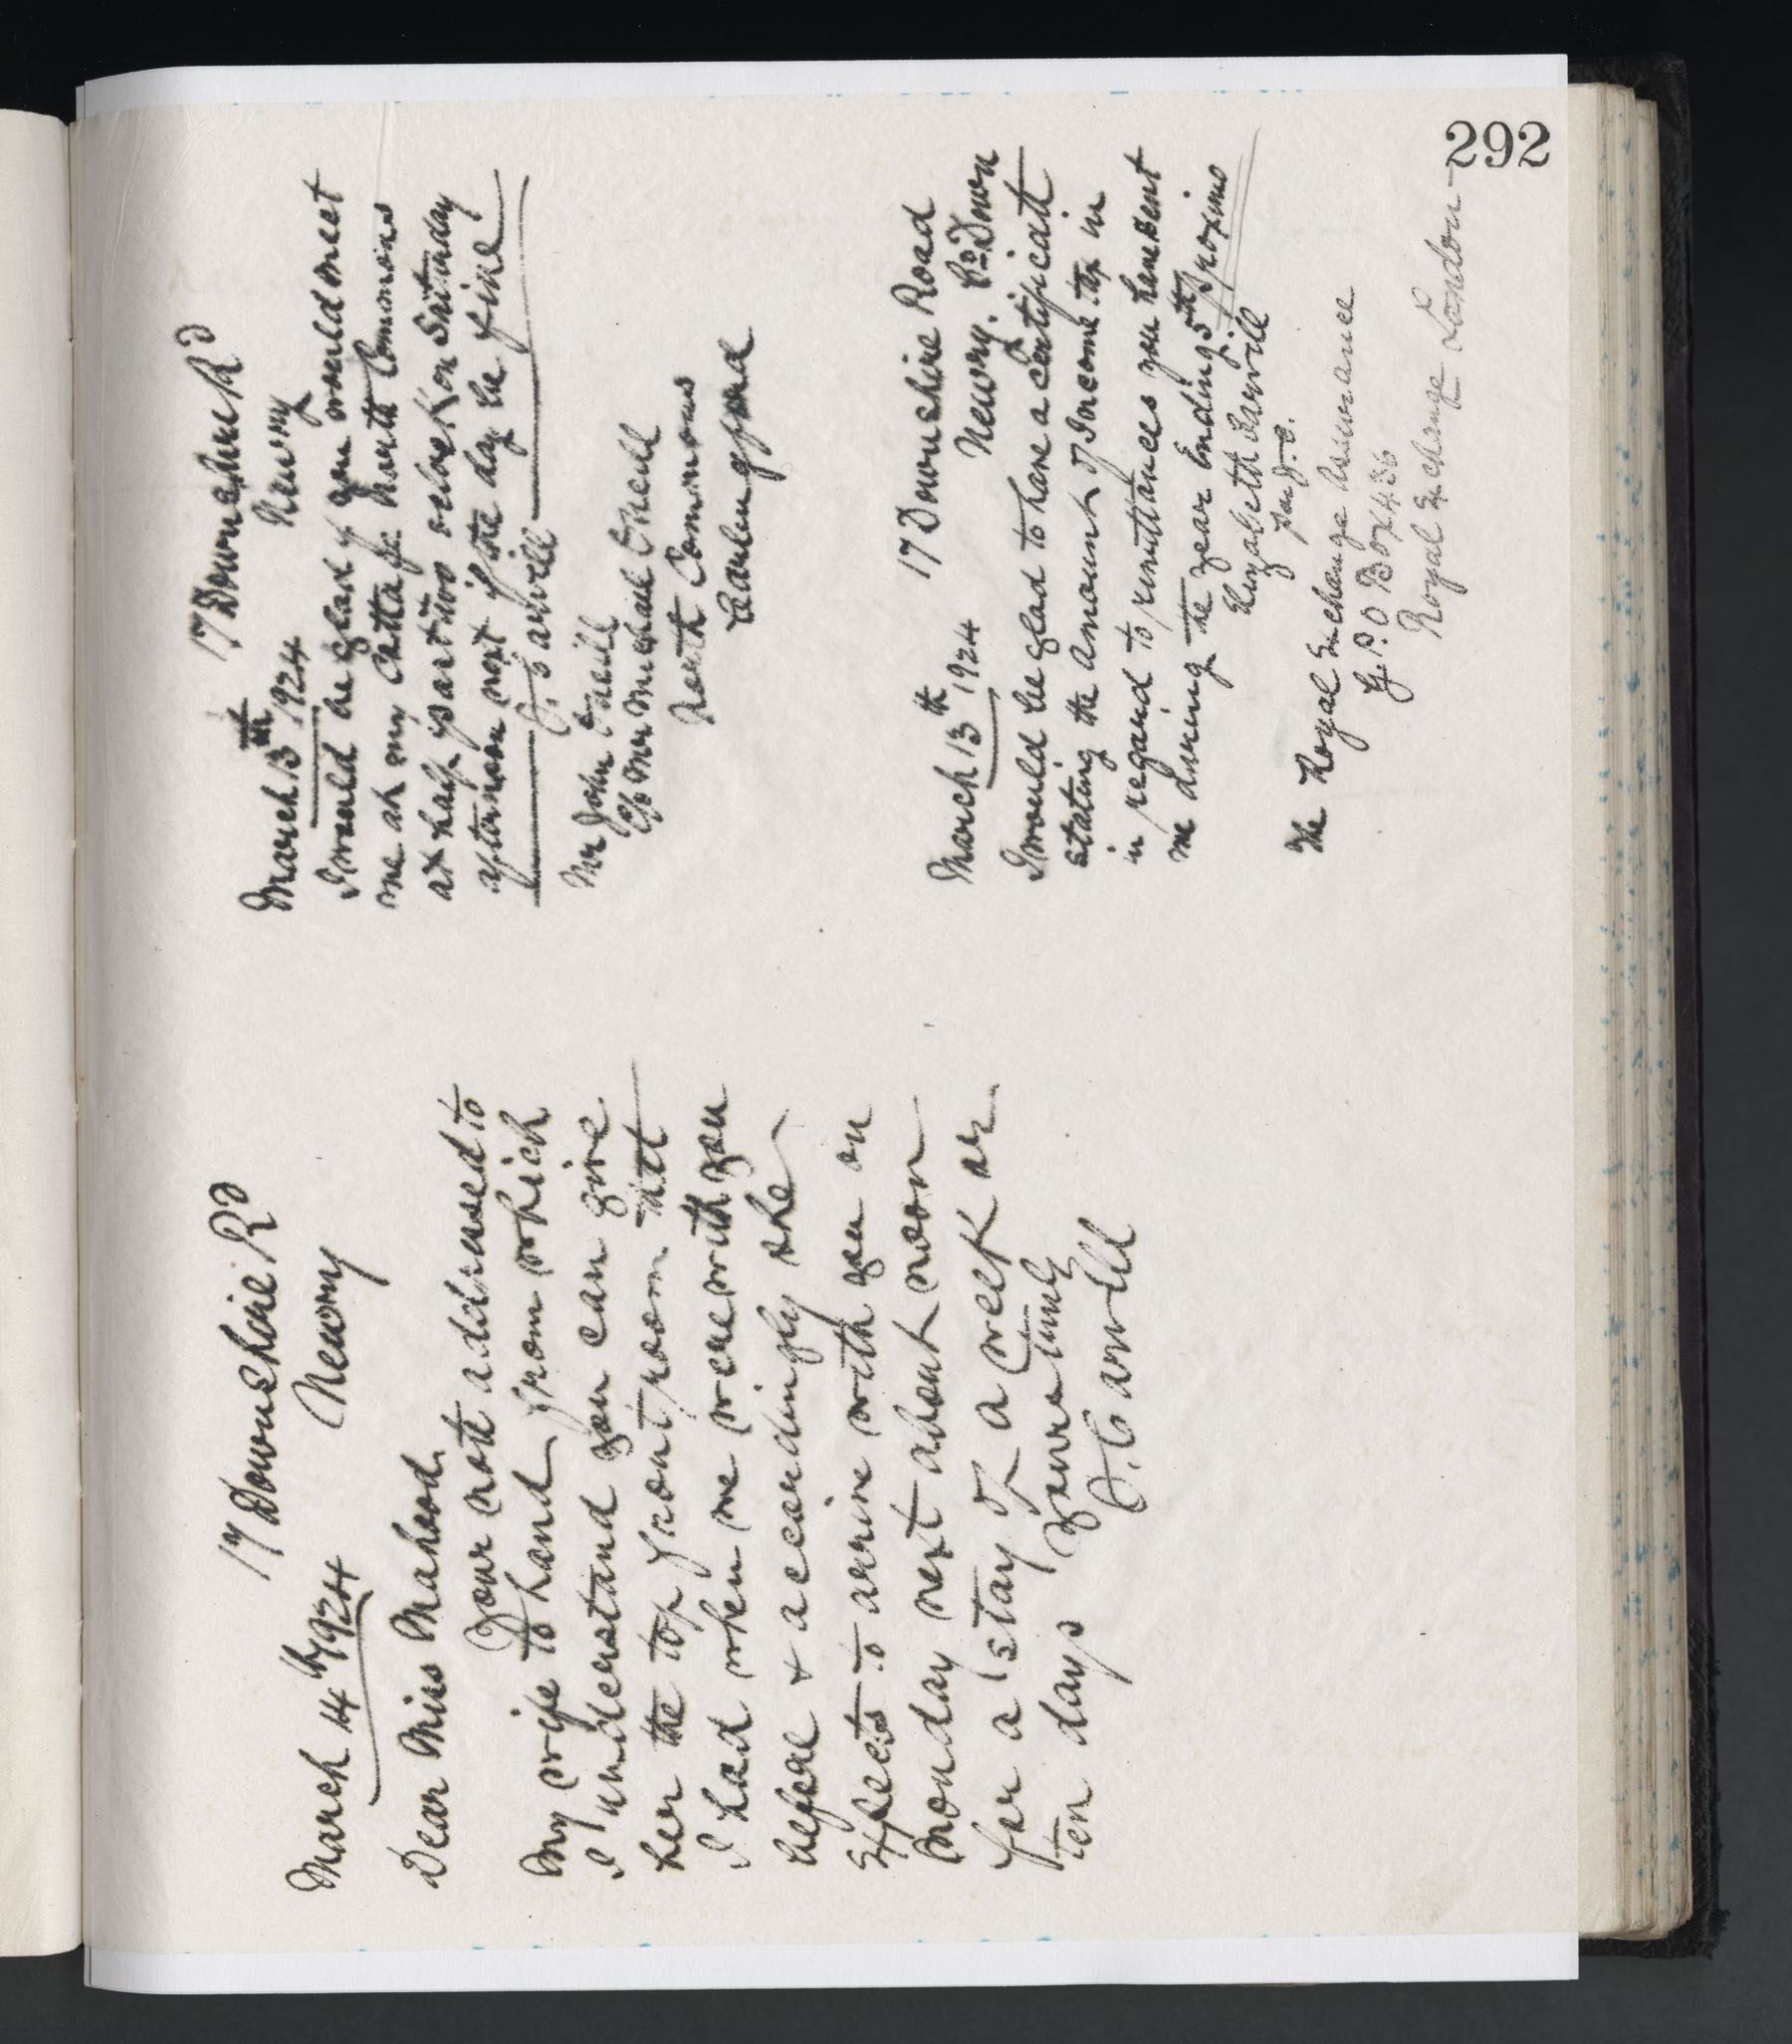 292
17 Downshire Rd
Newry
March 14th 1924
Dear Miss Mahood.
Your note addressed to
my wife to hand from which
I understand you can give
her the top front room that
I had when we were with you
before & accordingly she
expects to arrive with you on
Monday next about noon
for a stay of a week or
ten days yours truly
J. Carvill
17 Downshire Rd
Newry
March 13th 1924
I would be glad if you would meet
me at my Cottage North Commons
at half past two o'clock on Saturday
afternoon next if the day be fine
J. Carvill
Mr John O'Neill
C/o Mr Michael O'Neill
North Commons
Carlingford
17 Downshire Road
Newry. Co. Down
March 13th 1924
I would be glad to have a Certificate
stating the Amount of Income tax in
in regard to remittances you have sent
me during the year Ending 5th proximo
Elizabeth Carvill
per J.C.
The Royal Exchange Assurance
G.P.O Box 436
Royal Exchange London